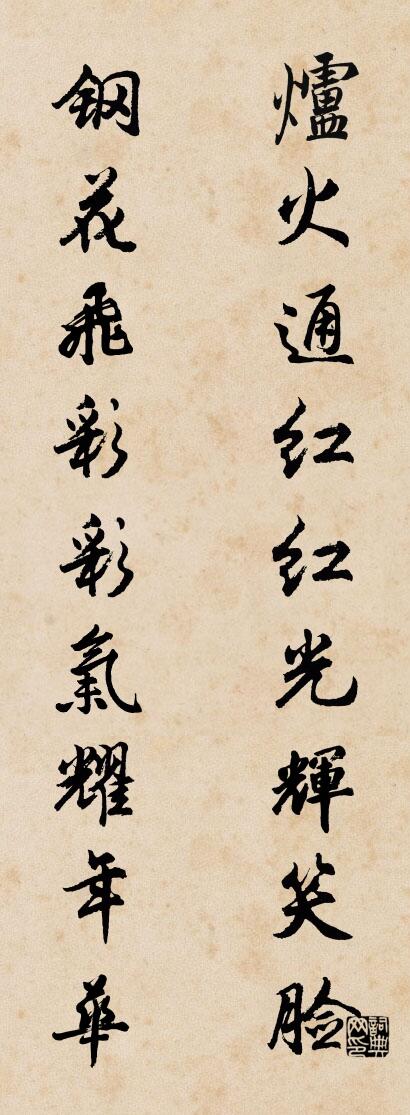 爐火通红红光輝笑脸
钢花飛彩彩氣耀年華
詞典網印